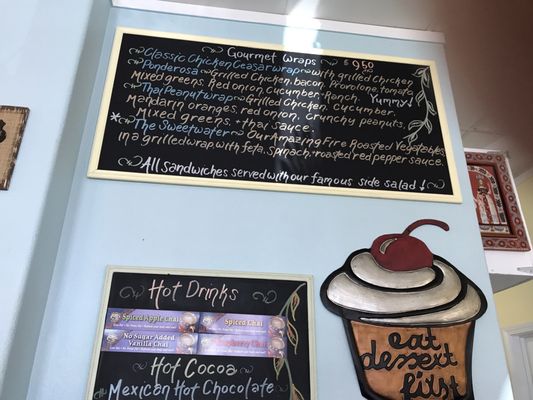 Gourmet Wraps $9.50
Classic Chicken Ceasar wrap ~ with grilled Chicken
Ponderosa ~ Grilled Chicken, bacon, Provolone, tomato
Mixed greens, Red onion, cucumber, Ranch. Yummy!
Thai Peanut wrap ~ Grilled Chicken, Cucumber,
Mandarin oranges, red onion, crunchy peanuts,
Mixed greens, + thai sauce.
* The Sweetwater ~ Our Amazing Fire Roasted Vegetables
in a grilled wrap with feta, Spinach, + roasted red pepper sauce.
All Sandwiches served with our famous side salad ↓
Hot Drinks
Spiced Apple Chai
Spiced Chai
No Sugar Added
Vanilla Chai
Raspberry Chai
Hot Cocoa
Mexican Hot Chocolate
eat
dessert
first